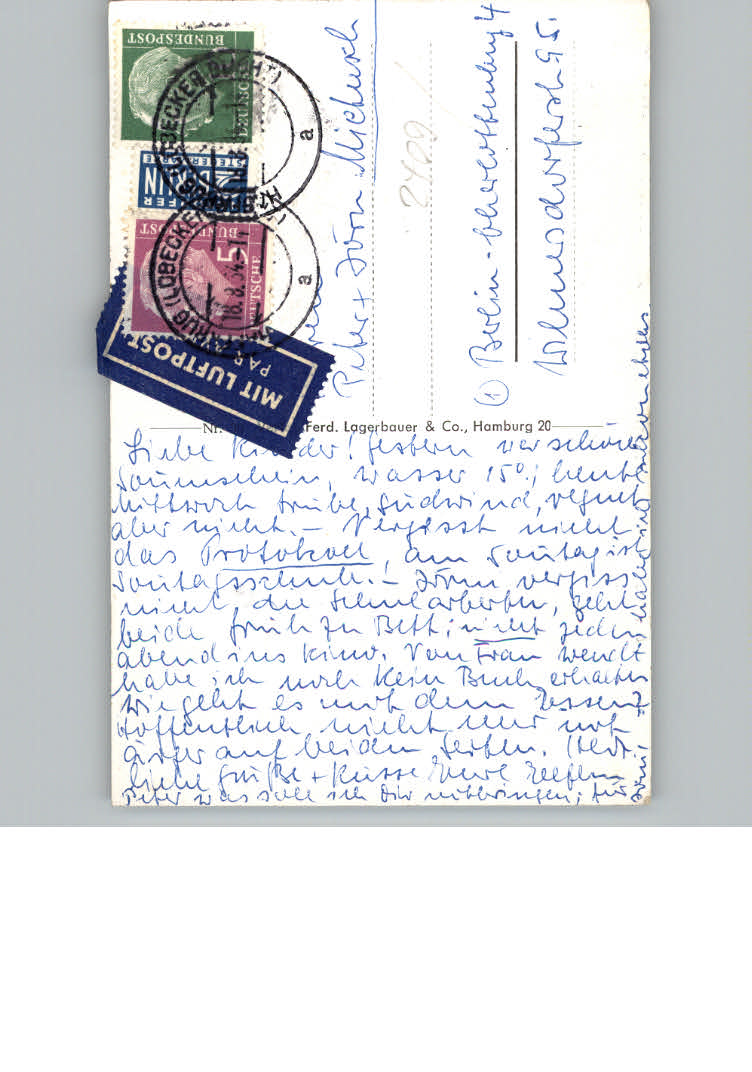 DEUTSCHE
BUNDESPOST
BERLIN
STEUERMARKE
DEUTSCHE
BUNDESPOST
5
(LÜBECKER BUCHT)
a
18.8.54-11
a
MIT LUFTPOST
PAR
Peter + Jörn Michusch
2409
(1) Berlin-Charlottenburg 4
Wilmersdorferstr. 95.
Ferd. Lagerbauer & Co., Hamburg 20
Liebe Kinder! Gestern war schöner
Sonnenschein, Wasser 15°; heute
Mittwoch trübe, Südwind, regnet
aber nicht. – Vergesst nicht
das Protokoll, am Sonntag ist
Jörn vergiss
nicht die Schularbeiten, geht
beide früh zu Bett; nicht jeden
abend ins Kino. Von Frau Wendt
habe ich noch kein Buch erhalten
wie geht es mit dem Essen?
Hoffentlich nicht nur mit
ärger auf beiden Seiten. Herz-
liche Grüße + Küsse Eure
Peter was soll ich Dir mitbringen; für
Jörn